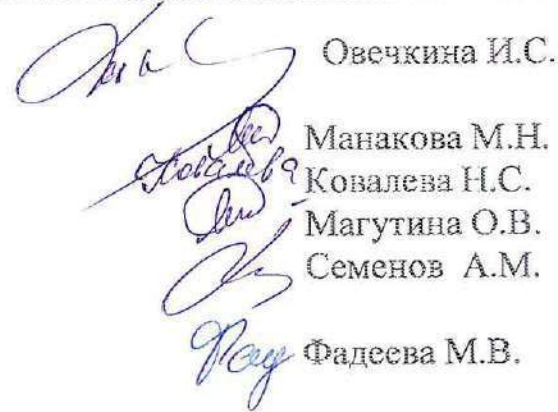 Овечкина И.С.
Манакова М.Н.
Ковалева Ковалева Н.С.
Магутина О.В.
Семенов А.М.
Фадеева М.В.